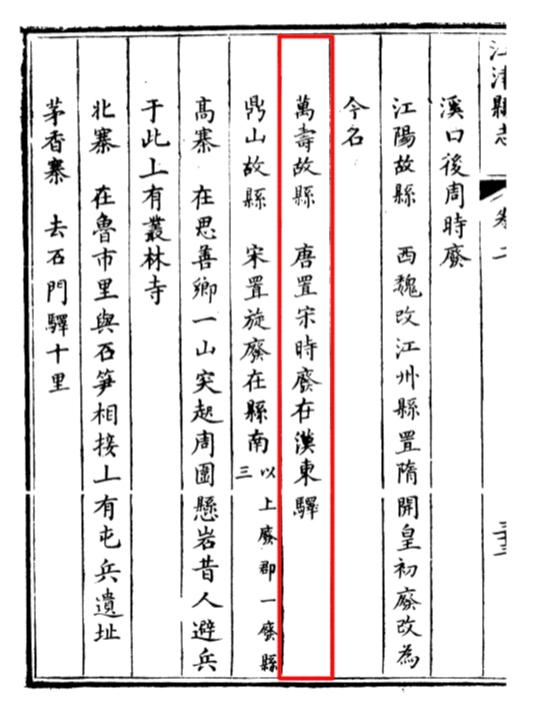 江津縣志
卷二
溪口後周時廢
江陽故縣　西魏改江州縣置隋開皇初廢改為
今名
萬壽故縣　唐置宋時廢在漢東驛
鼎山故縣　宋置旋廢在縣南以上廢郡一廢縣三
高寨　在思善鄉一山突起周圍懸岩昔人避兵
于此上有叢林寺
北寨　在魯市里與石笋相接上有屯兵遺址
茅香寨　去石門驛十里